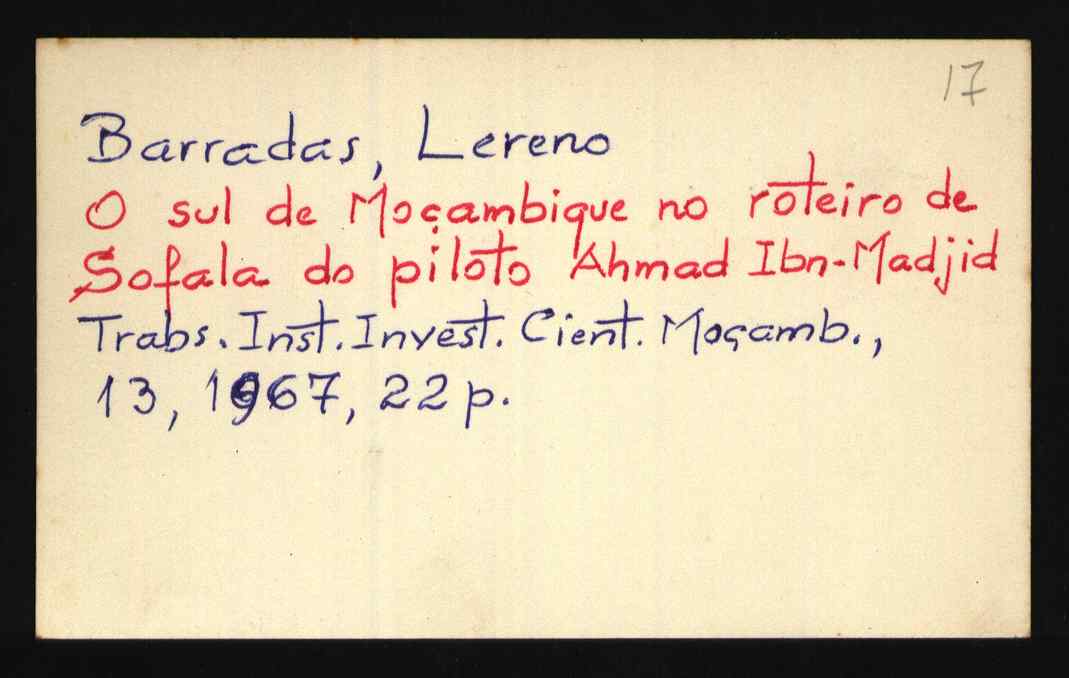 17
Barradas, Lereno
O sul de Moçambique no roteiro de
Sofala do piloto Ahmad Ibn-Madjid
Trabs. Inst. Invest. Cient. Moçamb.,
13, 1967, 22 p.